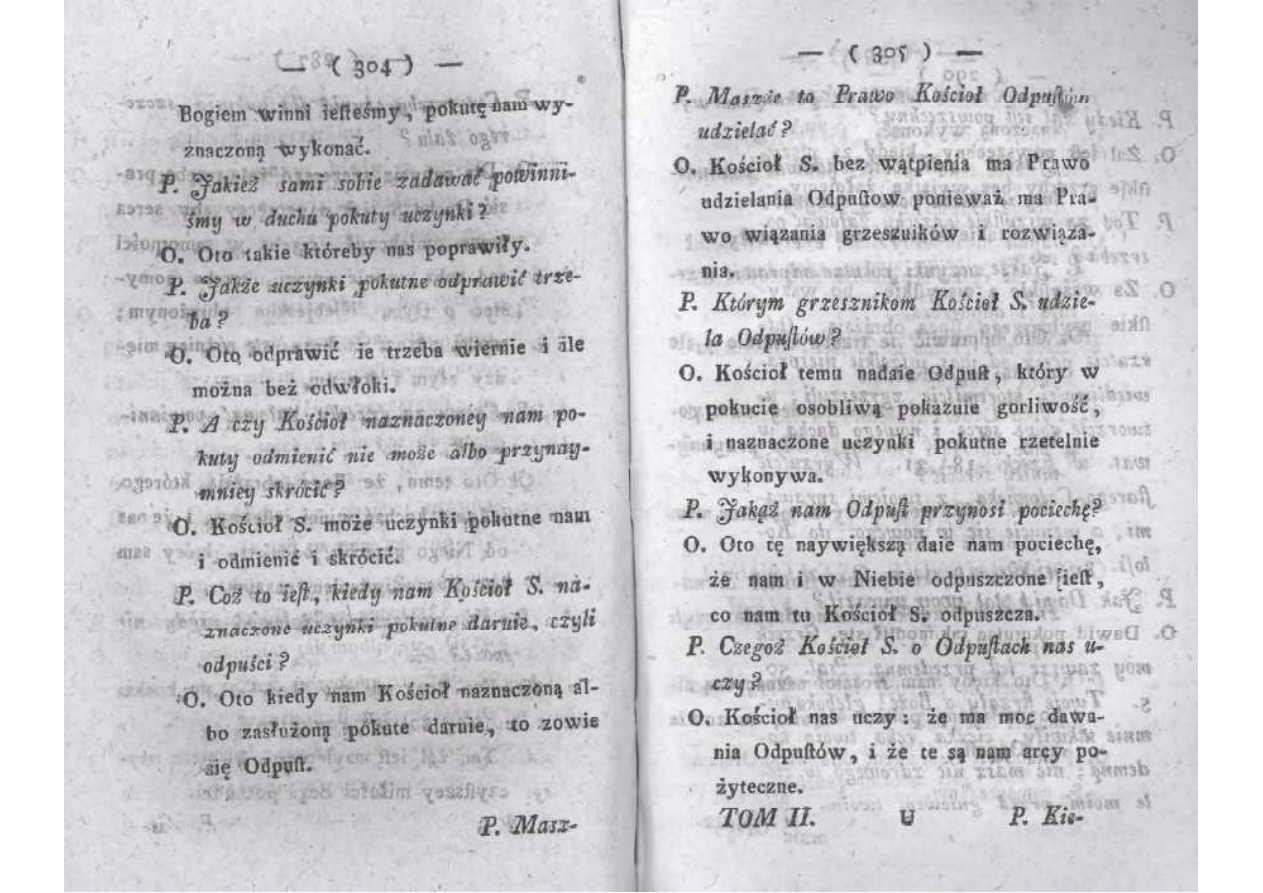 — ( 304 ) —
Bogiem winni ieſteśmy, pokutę nam wy-
znaczoną wykonać.
P. Jakież sami sobie zadawać powinni-
śmy w duchu pokuty uczynki?
O. Oto takie któreby nas poprawiły.
P. Jakże uczynki pokutne odprawić trze-
ba?
O. Oto odprawić ie trzeba wiernie i ile
można beż odwłoki.
P. A czy Kościoł naznaczoney nam po-
kuty odmienić nie może albo przynay-
mniey skrócić?
O. Kościoł S. może uczynki pokutne nam
i odmienić i skrócić.
P. Coż to ieſt, kiedy nam Kościoł S. na-
znaczone uczynki pokutne daruie, czyli
odpuści?
O. Oto kiedy nam Kościoł naznaczoną al-
bo zasłużoną pokute daruie, to zowie
się Odpuſt.
P. Masz-
— ( 305 ) —
P. Maszże to Prawo Kościoł Odpuſtów
udzielać?
O. Kościoł S. bez wątpienia ma Prawo
udzielania Odpuſtow ponieważ ma Pra-
wo wiązania grzeszników i rozwiąza-
nia.
P. Którym grzesznikom Kościoł S. udzie-
la Odpuſtów?
O. Kościoł temu nadaie Odpuſt, który w
pokucie osobliwą pokazuie gorliwość,
i naznaczone uczynki pokutne rzetelnie
wykonywa.
P. Jakąż nam Odpuſt przynosi pociechę?
O. Oto tę naywiększą daie nam pociechę,
że nam i w Niebie odpuszczone ieſt,
co nam tu Kościoł S. odpuszcza.
P. Czegoż Kościoł S. o Odpuſtach nas u-
czy?
O. Kościoł nas uczy: że ma moc dawa-
nia Odpuſtów, i że te są nam arcy po-
żyteczne.
TOM II. U P. Kie-